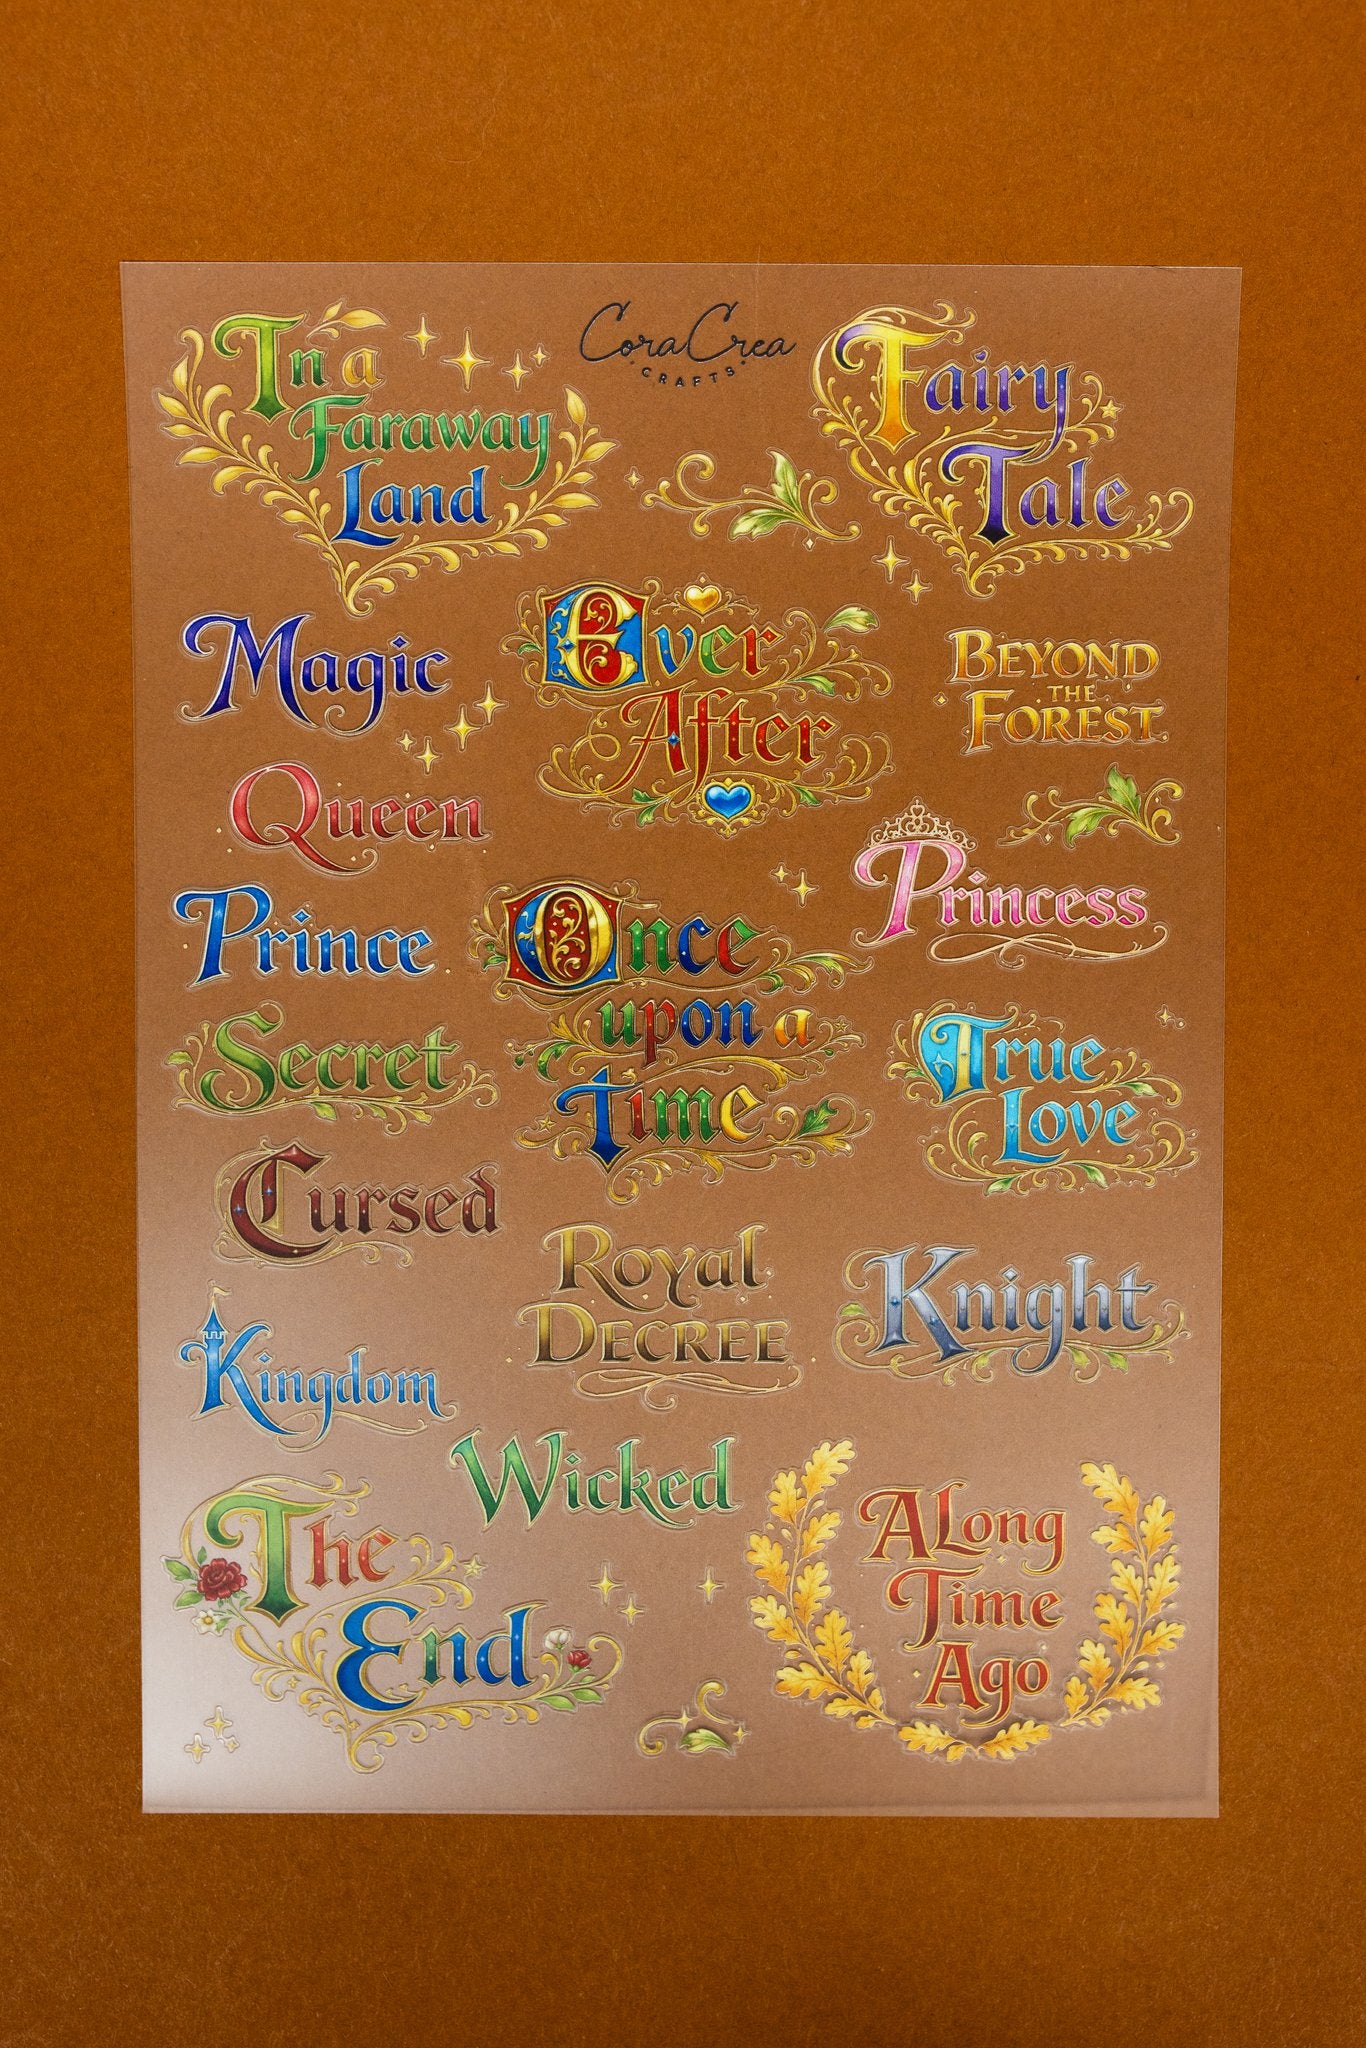 In a
Faraway
Land
CoraCrea
CRAFTS
Fairy
Tale
Magic
Ever
After
BEYOND
THE
FOREST
Queen
Princess
Prince
Once
upon a
Time
Secret
True
Love
Cursed
Royal
DECREE
Knight
Kingdom
Wicked
The
End
A Long
Time
Ago